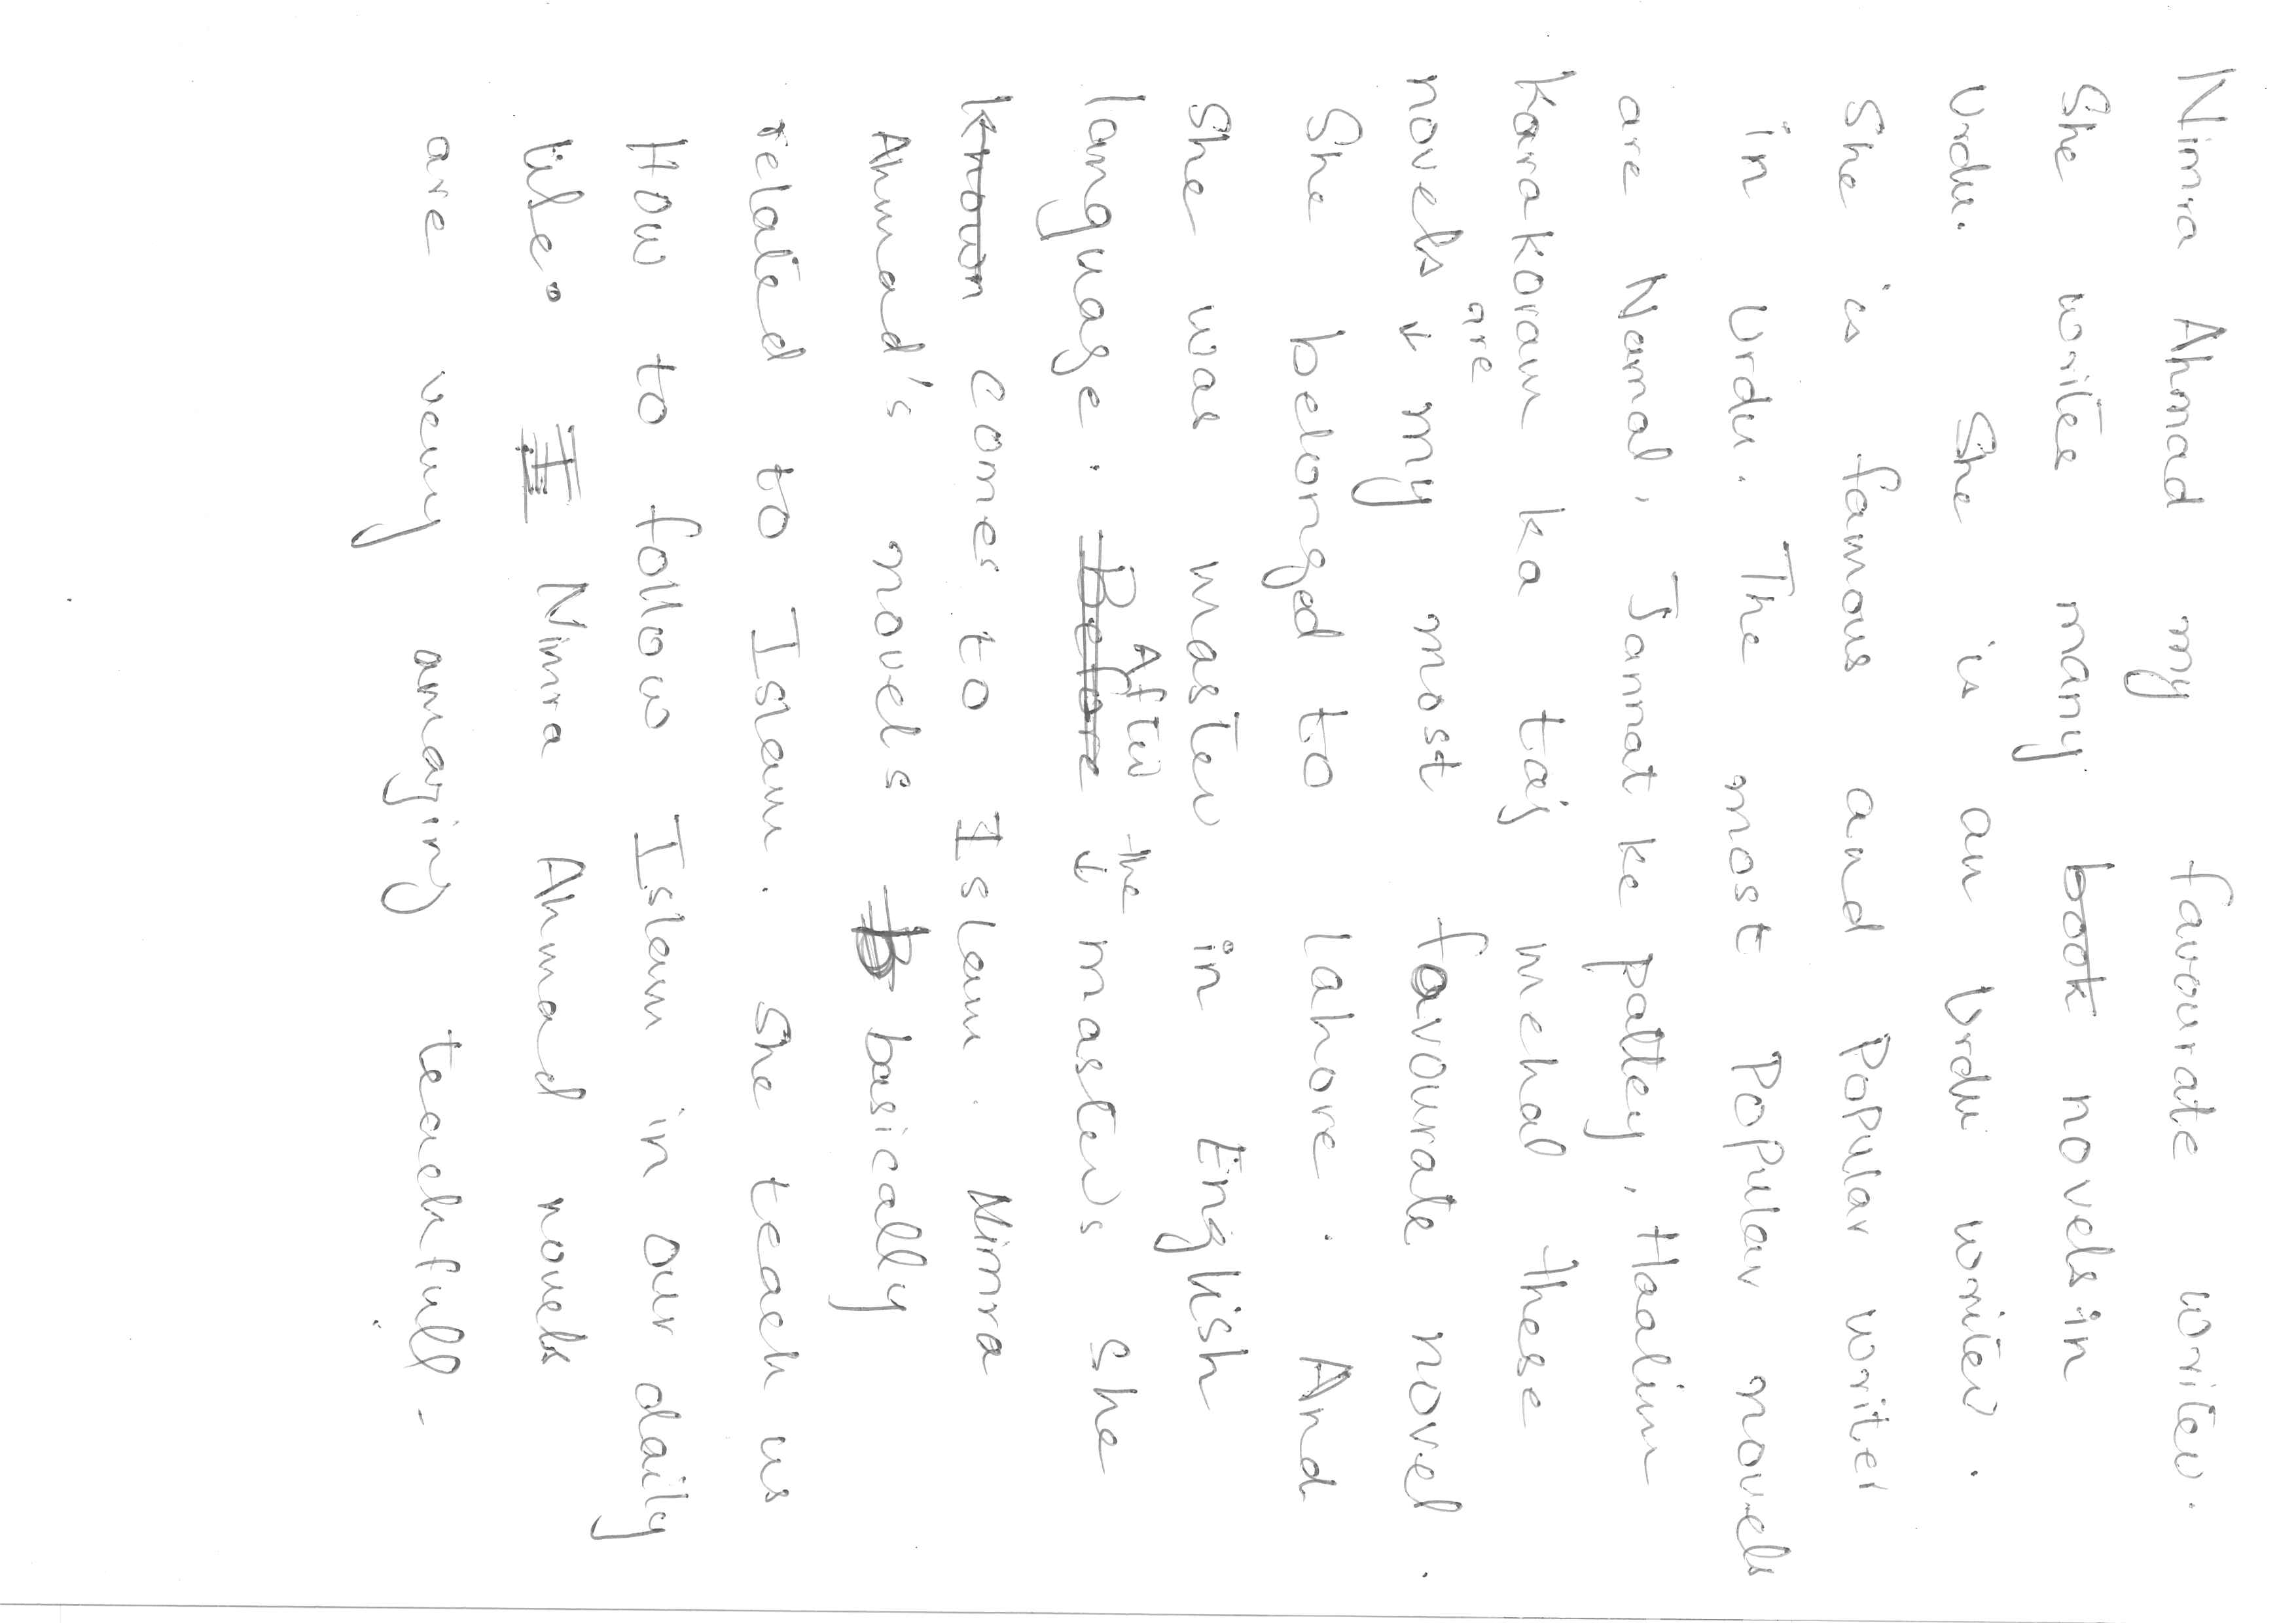 Nimra Ahmad my favourate writer.
She writes many book novels in
Urdu. She is an Urdu writer.
She is famous and Popular writer
in Urdu. The most Popular novels
are Namal, Jannat ke pattey, Haalim
Karakoram ka taj mehal these
are
novels my most favourate novel.
She belonged to lahore. And
She was master in English
After the
language. Before masters she
known comes to Islam. Nimra
Ahmad's novels B basically
related to Islam. She teach us
How to follow Islam in our daily
life. I Nimra Ahmad novels
are very amazing teachfull.